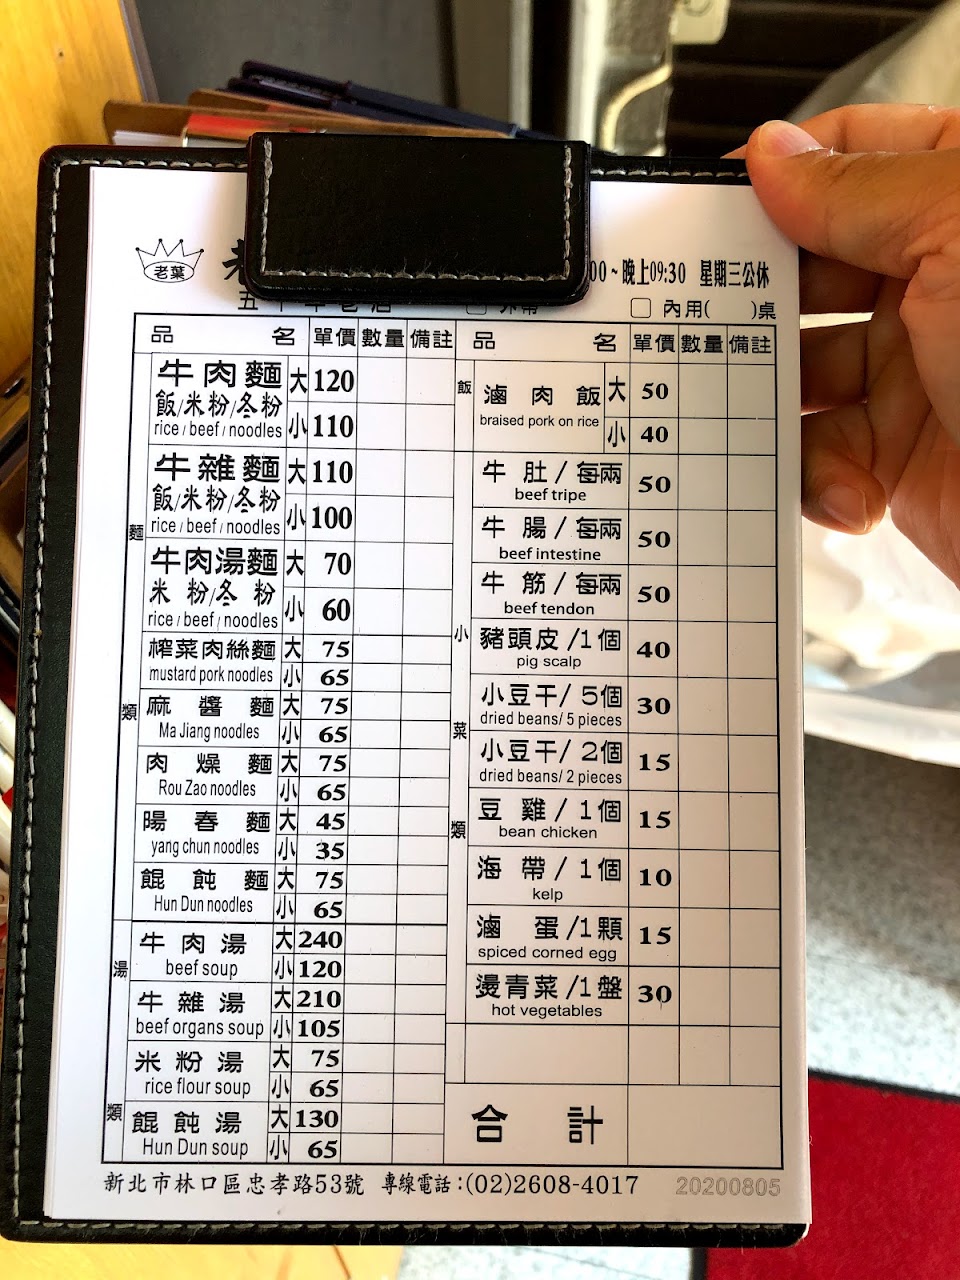 老葉
00~晚上09:30 星期三公休
內用( )桌
品 名 單價 數量 備註
麵類
牛肉麵 大 120
飯/米粉/冬粉
rice / beef / noodles 小 110
牛雜麵 大 110
飯/米粉/冬粉
rice / beef / noodles 小 100
牛肉湯麵 大 70
米粉/冬粉
rice / beef / noodles 小 60
榨菜肉絲麵 大 75
mustard pork noodles 小 65
麻醬麵 大 75
Ma Jiang noodles 小 65
肉燥麵 大 75
Rou Zao noodles 小 65
陽春麵 大 45
yang chun noodles 小 35
餛飩麵 大 75
Hun Dun noodles 小 65
湯類
牛肉湯 大 240
beef soup 小 120
牛雜湯 大 210
beef organs soup 小 105
米粉湯 大 75
rice flour soup 小 65
餛飩湯 大 130
Hun Dun soup 小 65
品 名 單價 數量 備註
飯
滷肉飯 大 50
braised pork on rice 小 40
小菜類
牛肚/每兩 50
beef tripe
牛腸/每兩 50
beef intestine
牛筋/每兩 50
beef tendon
豬頭皮/1個 40
pig scalp
小豆干/5個 30
dried beans/ 5 pieces
小豆干/2個 15
dried beans/ 2 pieces
豆雞/1個 15
bean chicken
海帶/1個 10
kelp
滷蛋/1顆 15
spiced corned egg
燙青菜/1盤 30
hot vegetables
合計
新北市林口區忠孝路53號 專線電話:(02)2608-4017 20200805